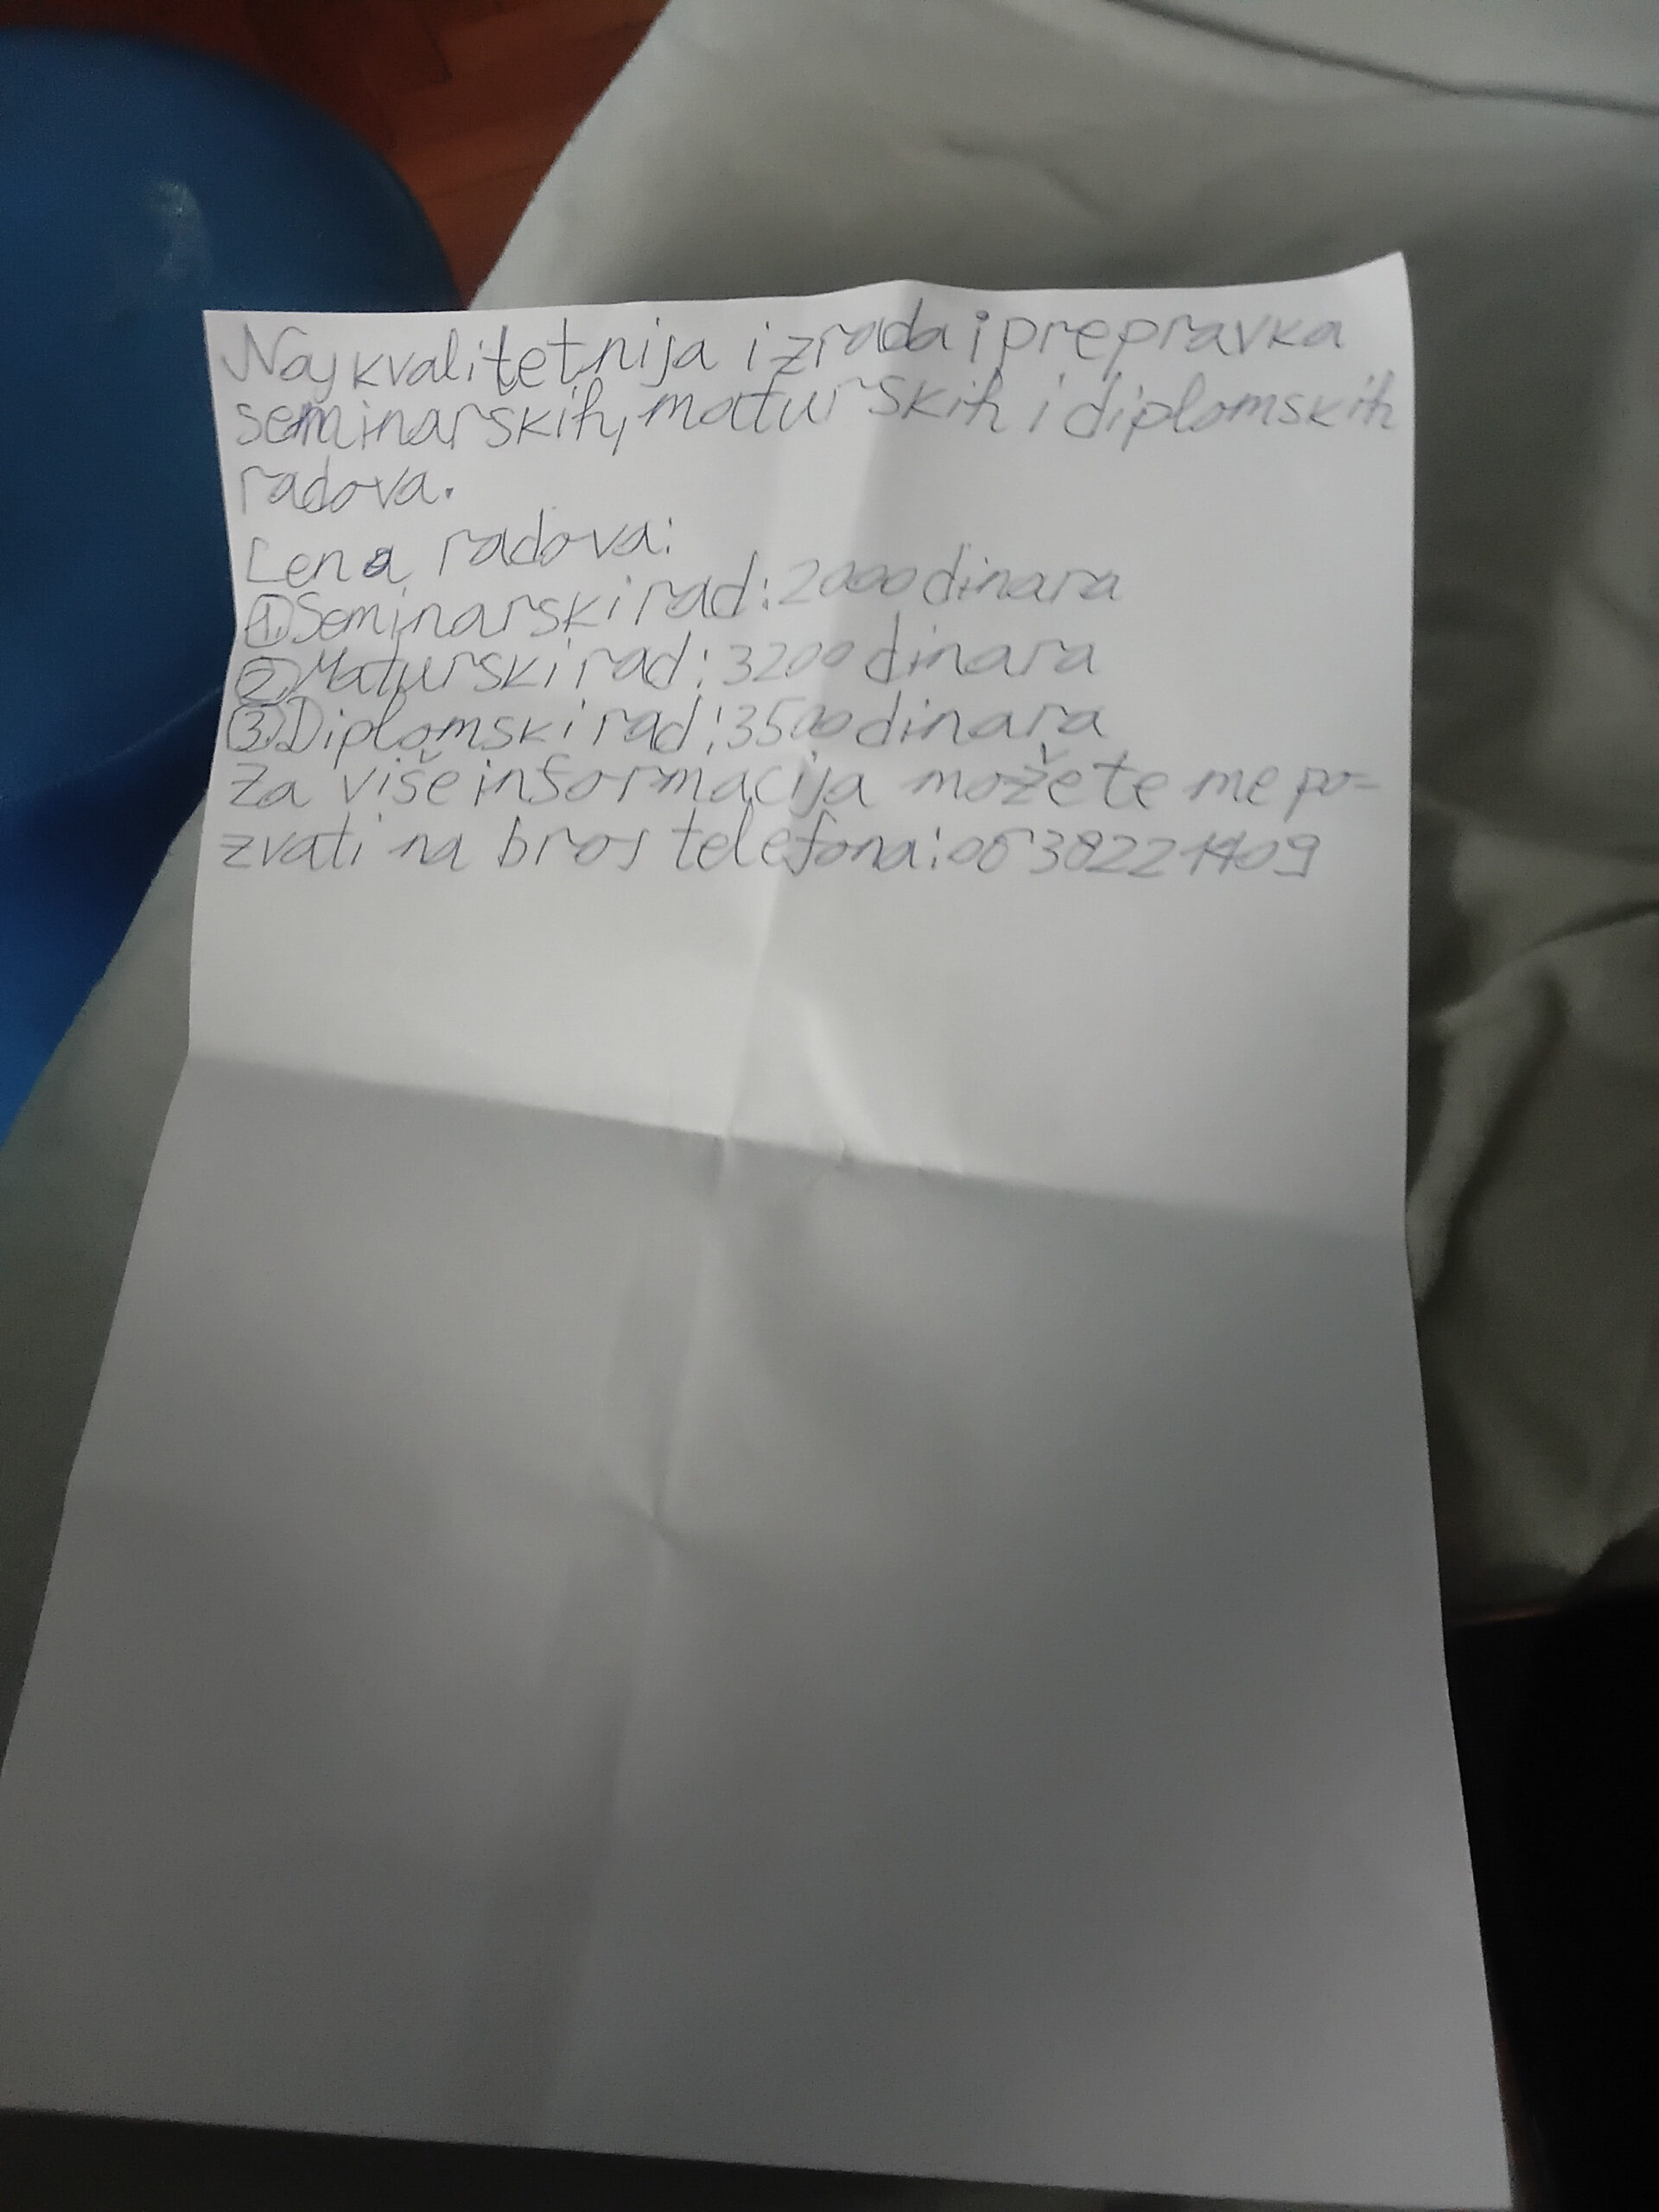 Najkvalitetnija izrada i prepravka
seminarskih, maturskih i diplomskih
radova.
Cena radova:
1. Seminarski rad: 2000 dinara
2. Maturski rad: 3200 dinara
3. Diplomski rad: 3500 dinara
Za više informacija možete me po-
zvati na broj telefona: